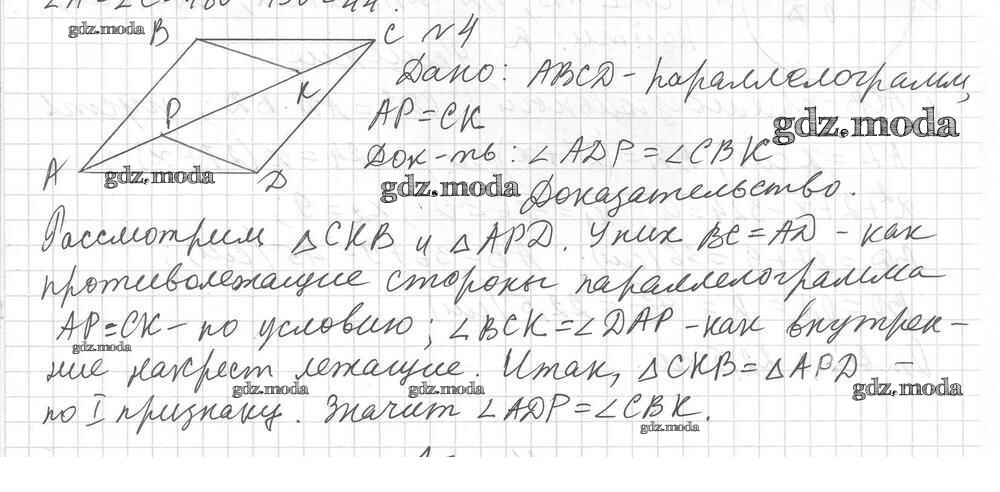 ∠A = ∠C = 180
gdz.moda
B
C №4
Дано: ABCD - параллелограмм,
K
P
AP=CK
gdz.moda
Док-ть: ∠ADP=∠CBK
A
gdz.moda
D
gdz.moda
Доказательство.
Рассмотрим △CKB и △APD. У них BC=AD - как
противолежащие стороны параллелограмма
AP=CK - по условию; ∠BCK=∠DAP - как внутрен-
gdz.moda
ние накрест лежащие. Итак, △CKB=△APD -
gdz.moda
gdz.moda
gdz.moda
по I признаку. Значит ∠ADP=∠CBK.
gdz.moda